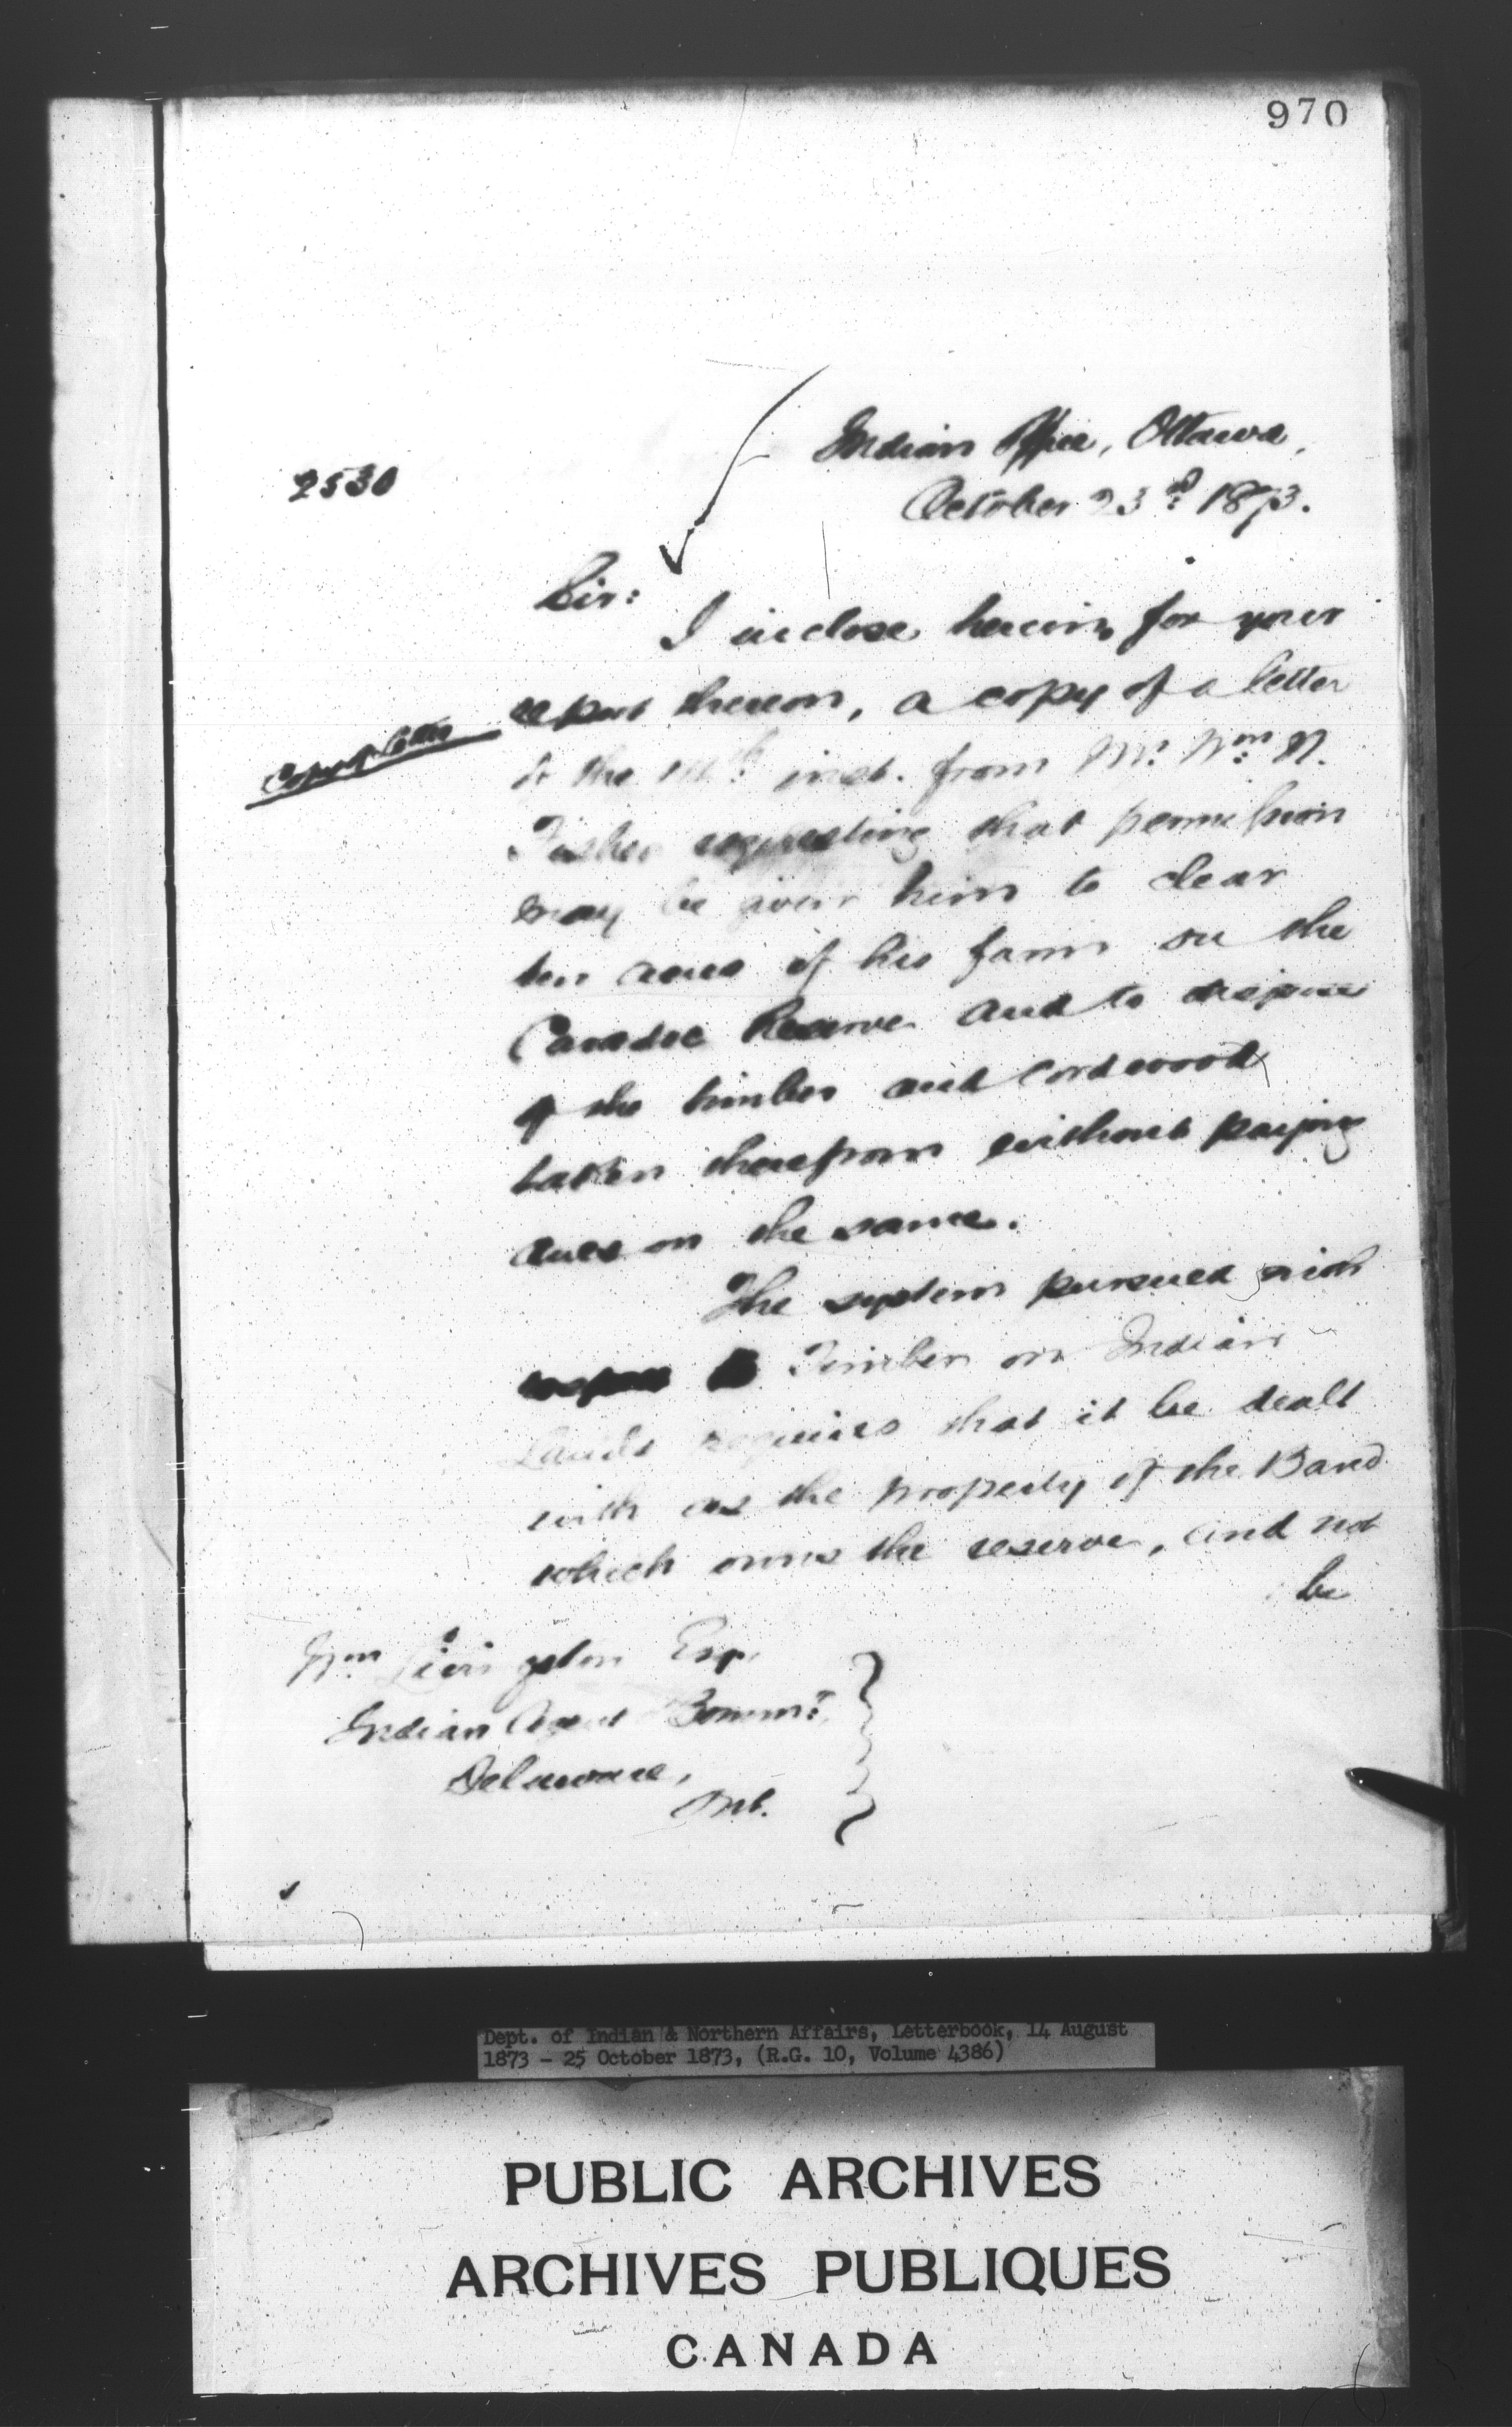 970
2530
Indian Office, Ottawa,
October 23rd 1873.
Sir:
I inclose herein for your
Copy of letter
report thereon, a copy of a letter
of the inst. from Mr. Wm. N.
Fisher requesting that permission
may be given him to clear
ten acres of his farm on the
Caradoc Reserve and to dispose
of the timber and cordwood
taken therefrom without paying
dues on the same.
The system pursued with
respect to Timber on Indian
Lands requires that it be dealt
with as the property of the Band
which owns the reserve, and not
be
Wm Livingston Esq.
Indian Agent Commr.
Delaware,
Ont.
Dept. of Indian & Northern Affairs, Letterbook, 14 August
1873 - 25 October 1873, (R.G. 10, Volume 4386)
PUBLIC ARCHIVES
ARCHIVES PUBLIQUES
CANADA